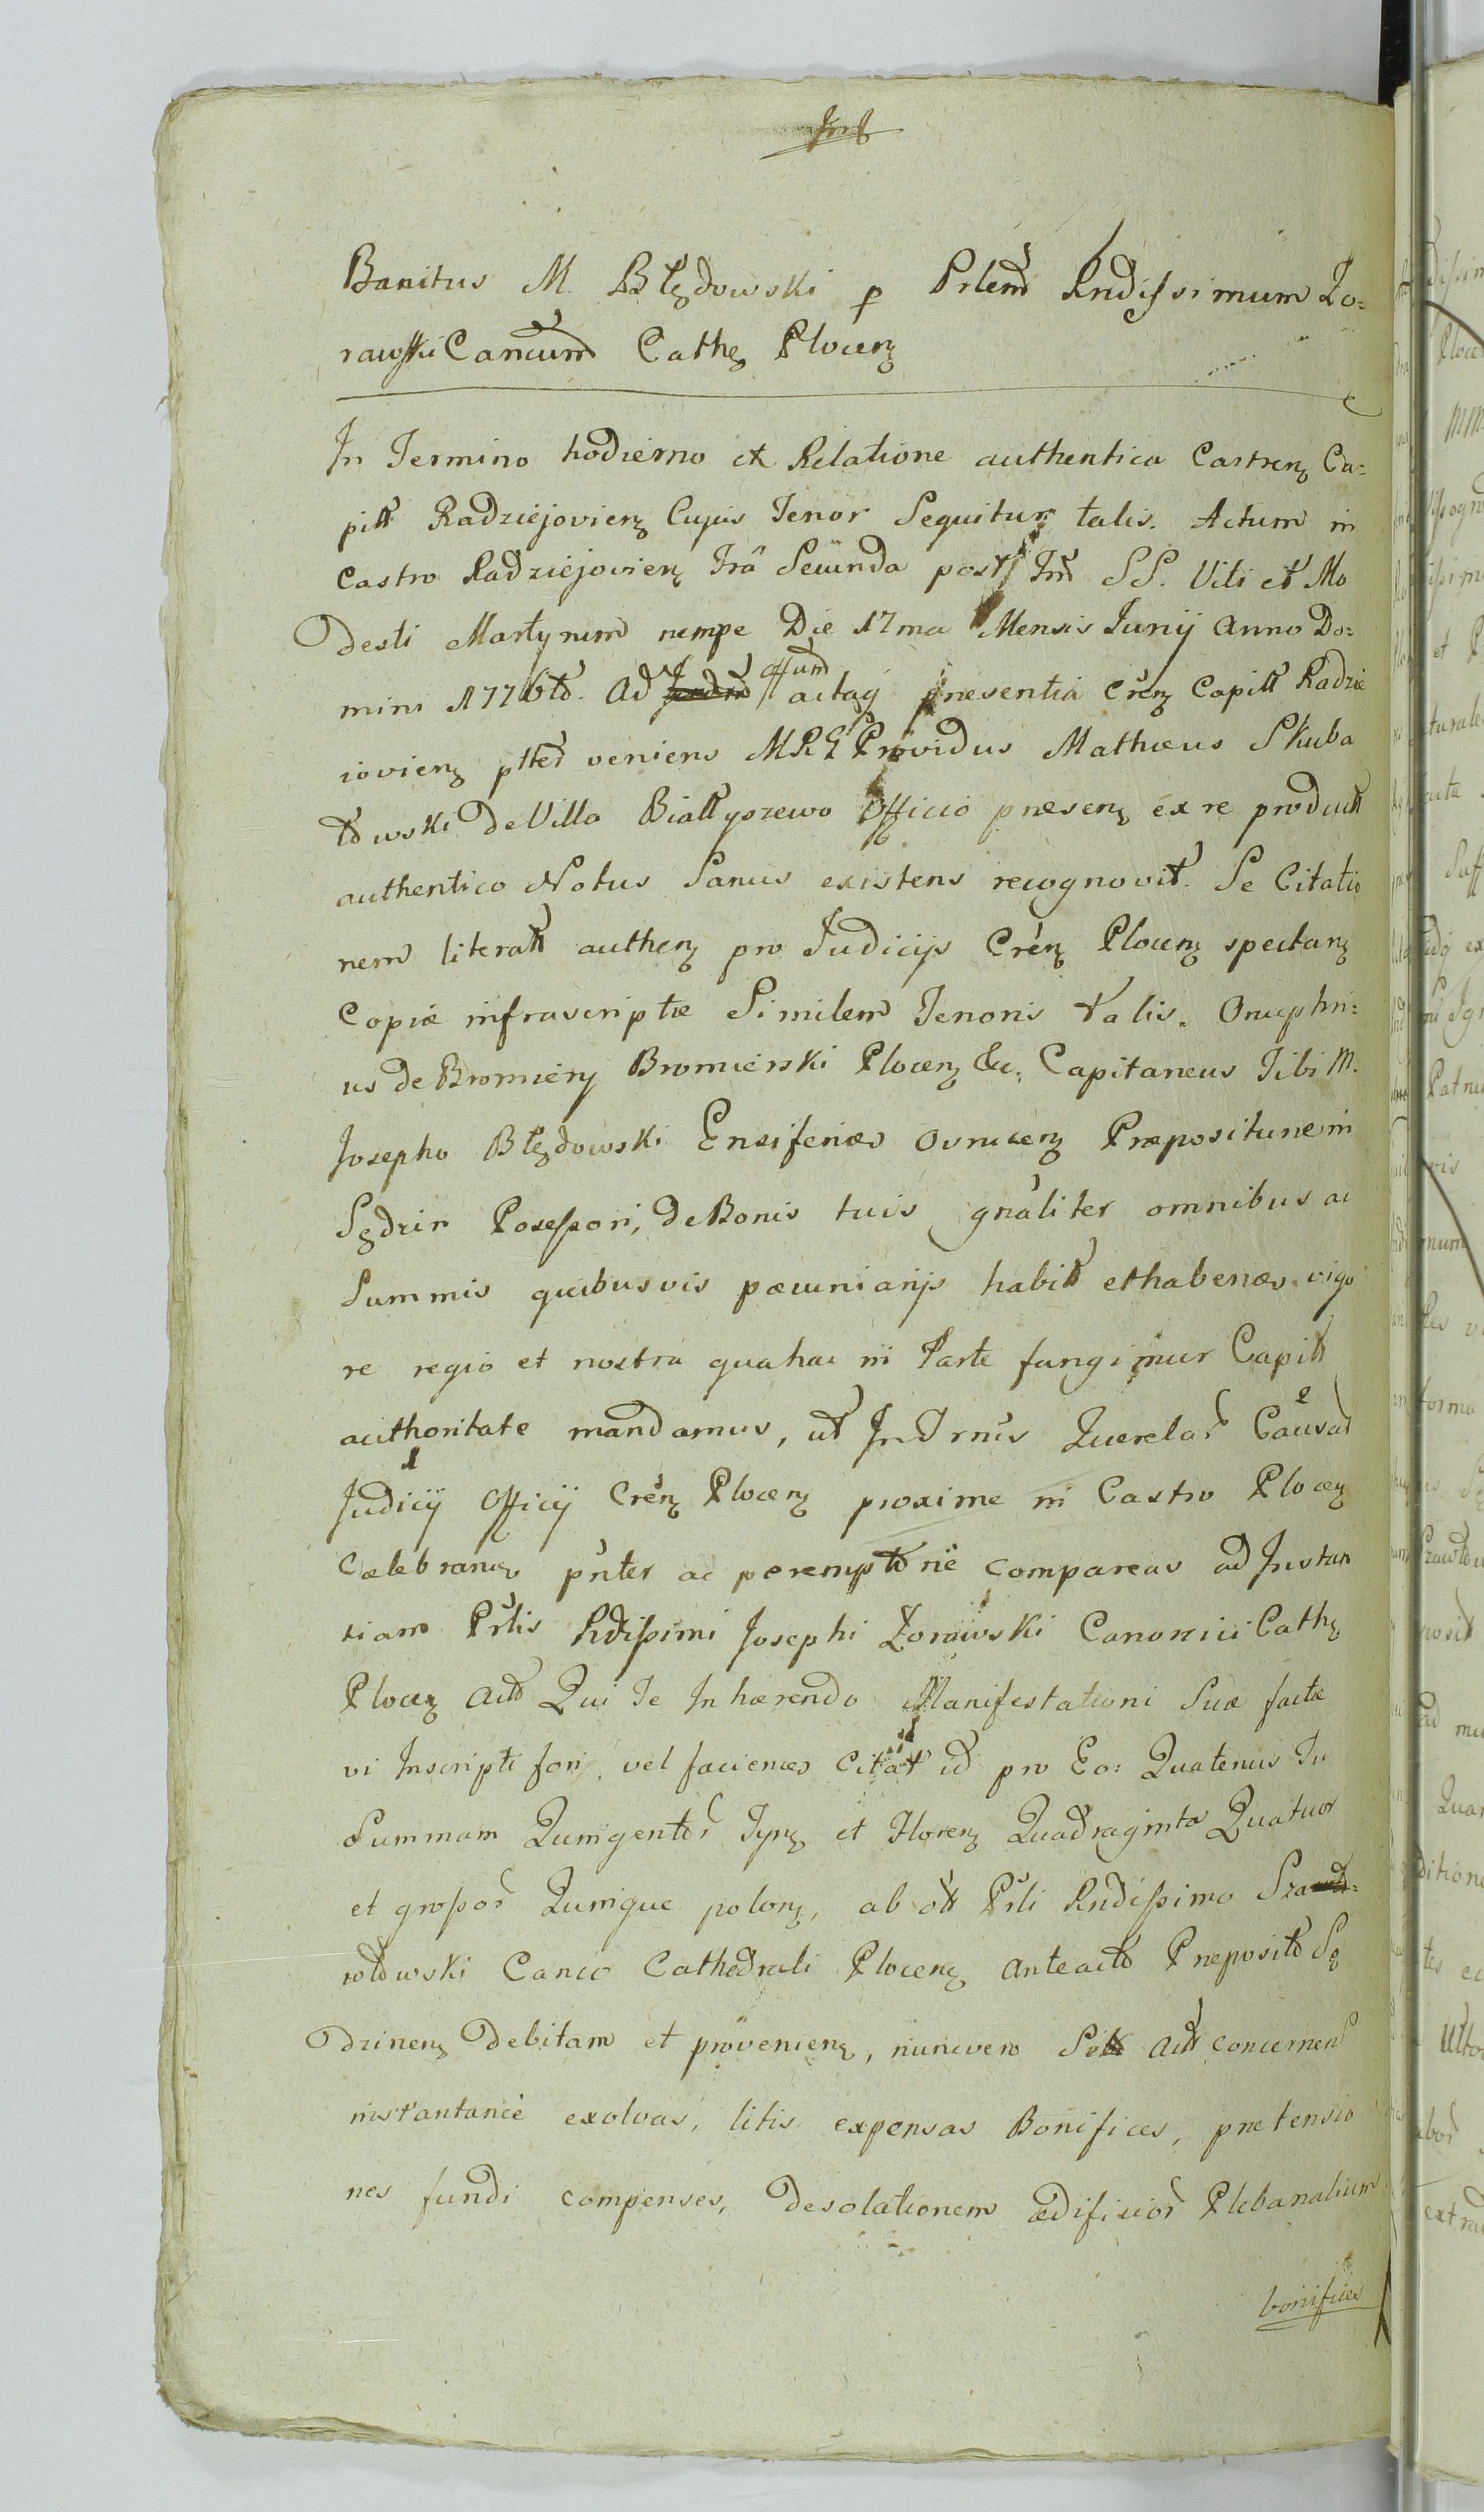 Banitus M. Błędowski p Prlem Rndissimum Zo=
rawski Cancum Cathę Plocenę
In Termino hodierno ex Relatione authentica Castrenę Ca=
pitt Radziejovienę Cujus Tenor Sequitur talis. Actum in
Castro Radziejovienę Fra Secunda post Fm SS. Viti et Mo
desti Martyrum nempe Die 17ma Mensis Junij Anno Do=
mini 1776to. Ad offum actaq presentia Crenę Capitt Radzie
iovienę ptter veniens MRG Providus Mathæus Skuba
towski de Villa Białłyszewo Officio præsenę ex re productt
authentico Notus Sanus existens recognovit. Se Citatio
nem literatt authenę pro Judicijs Crenę Plocenę spectanę
Copiæ infrascriptæ Similem Tenoris talis. Onuphri=
us de Bromierz Bromierski Plocenę &c. Capitaneus Tibi M.
Josepho Błędowski Ensiferiæs Ovrucenę Præpositurem
Sędzin Possessori, de Bonis tuis gnaliter omnibus ac
Summis quibusvis pæcuniarijs habitt et habenæs vigo
re regio et nostra qua hac in Parte fungimur Capitt
authoritate mandamus, ut In Trnis Querelar Causar
Judicij Officij Crenę Plocenę proxime in Castro Plocenę
Cælebranæs pnter ac peremptorie compareas ad Instan
tiam Prlis Rdissimi Josephi Zorawski Canonici Cathę
Plocenę Act Qui Te Inhærendo Manifestationi Suæ factæ
vi Inscripti fori, vel faciences Citat id pro Eo: Quatenus Tu
Summam Quingentor Tynę et Florenę Quadraginta Quatuor
et grossor Quinque polonę, ab ott Prli Rndissimo Sza
wtowski Canco Cathedrali Plocenę anteacto Preposito Sę
dzinenę debitam et provenienę, nunc vero Actt concernen
instantanie exolvas, litis expensas Bonifices, pretensio
nes fundi compenses, desolationem ædificior Plebanalium
bonifices